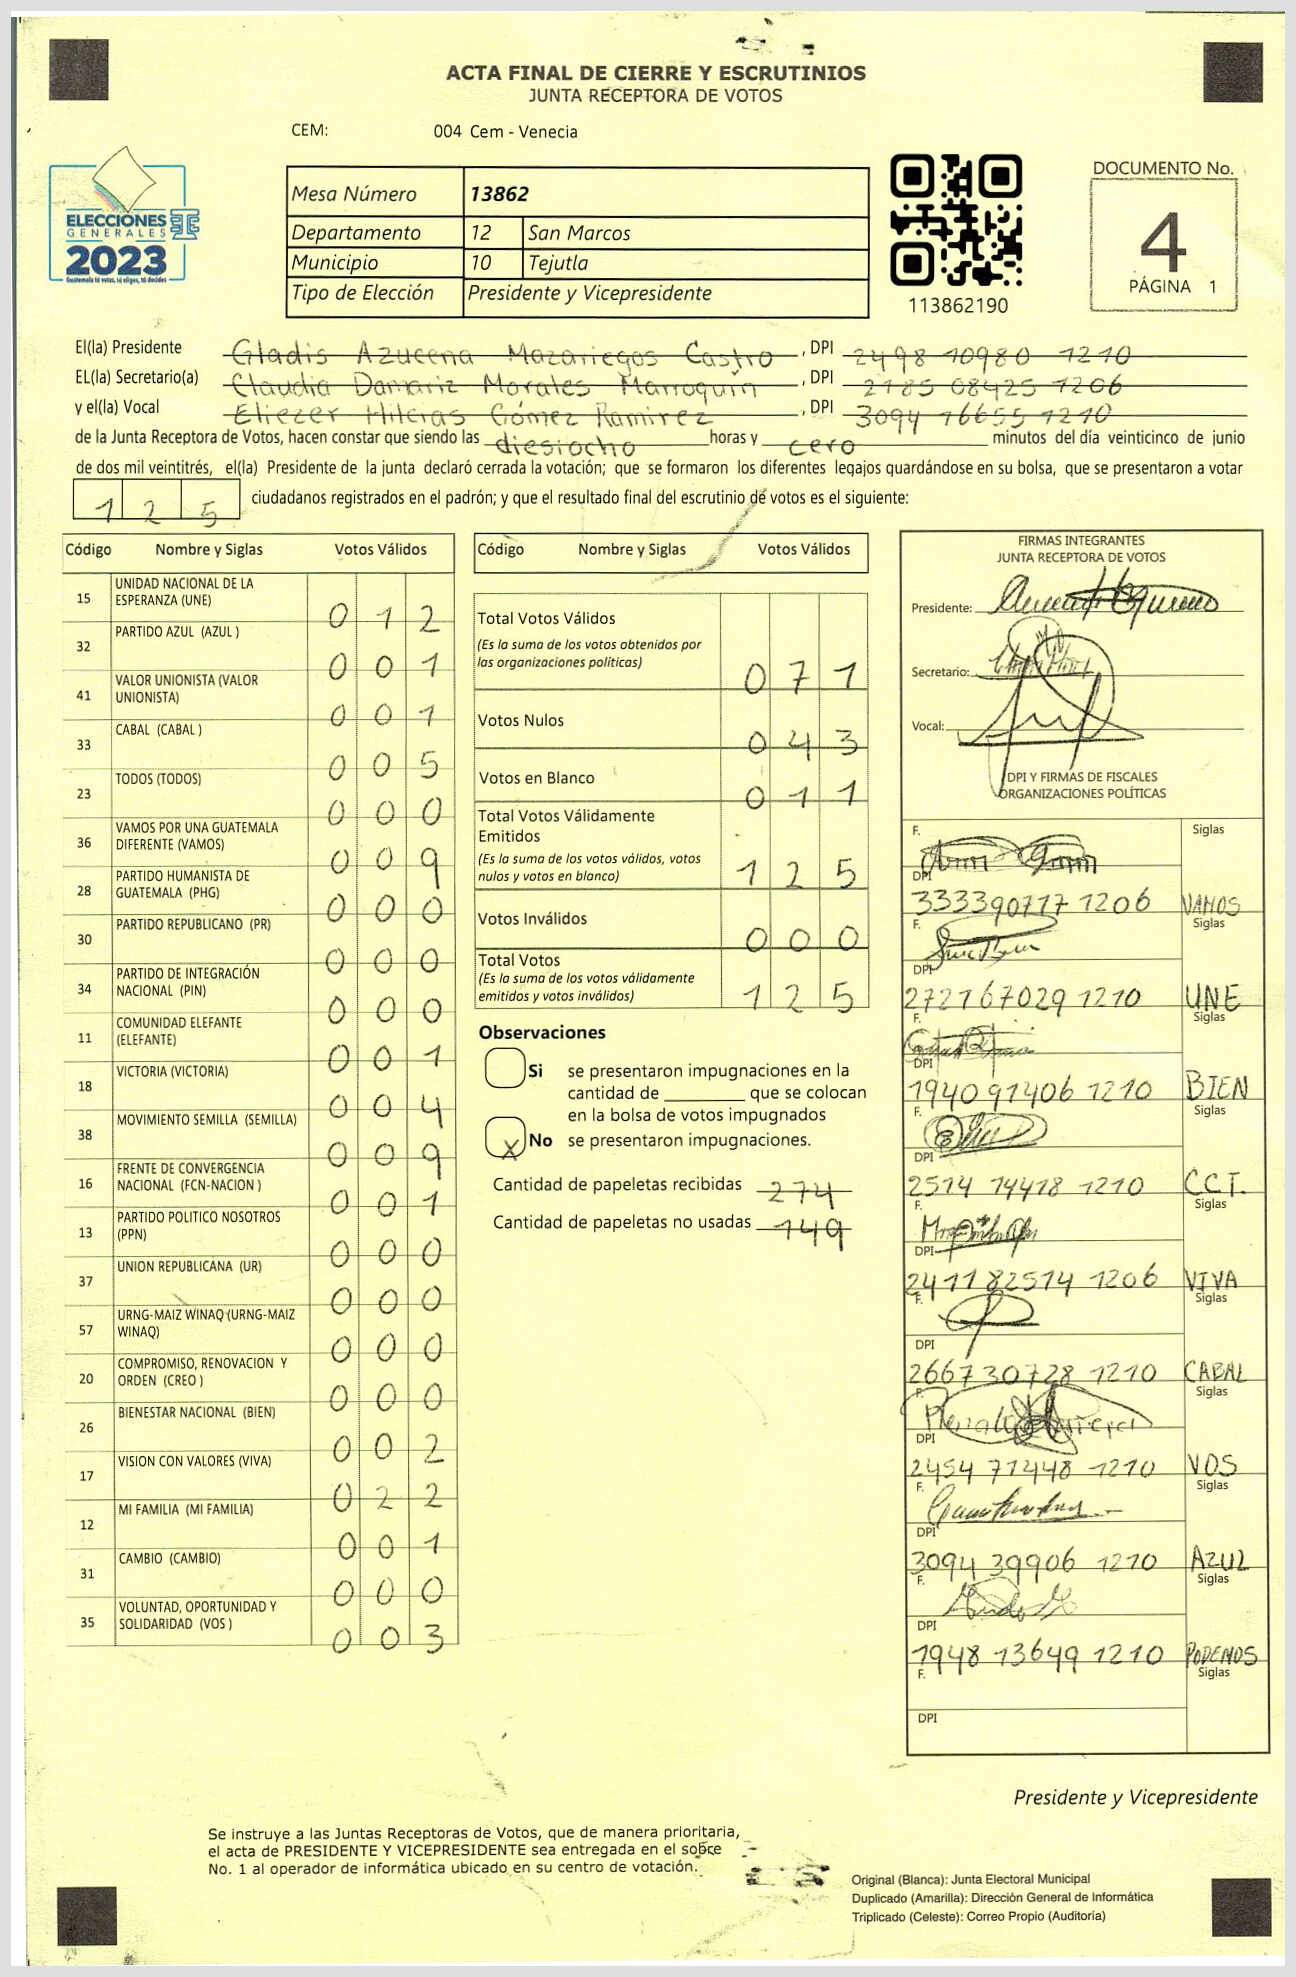 ACTA FINAL DE CIERRE Y ESCRUTINIOS
JUNTA RECEPTORA DE VOTOS
CEM: 004 Cem - Venecia
ELECCIONES
GENERALES
2023
Guatemala tú votas, tú eliges, tú decides
Mesa Número 13862
Departamento 12 San Marcos
Municipio 10 Tejutla
Tipo de Elección Presidente y Vicepresidente
113862190
DOCUMENTO No.
4
PÁGINA 1
El(la) Presidente Gladis Azucena Mazariegos Castro , DPI 2498 10980 1210
EL(la) Secretario(a) Claudia Damariz Morales Marroquín , DPI 2185 08425 1206
y el(la) Vocal Eliezer Hilcias Gómez Ramirez , DPI 3094 16655 1210
de la Junta Receptora de Votos, hacen constar que siendo las diesiocho horas y cero minutos del día veinticinco de junio
de dos mil veintitrés, el(la) Presidente de la junta declaró cerrada la votación; que se formaron los diferentes legajos guardándose en su bolsa, que se presentaron a votar
1 2 5 ciudadanos registrados en el padrón; y que el resultado final del escrutinio de votos es el siguiente:
Código Nombre y Siglas Votos Válidos
15 UNIDAD NACIONAL DE LA
ESPERANZA (UNE) 0 1 2
32 PARTIDO AZUL (AZUL ) 0 0 1
41 VALOR UNIONISTA (VALOR
UNIONISTA) 0 0 1
33 CABAL (CABAL ) 0 0 5
23 TODOS (TODOS) 0 0 0
36 VAMOS POR UNA GUATEMALA
DIFERENTE (VAMOS) 0 0 9
28 PARTIDO HUMANISTA DE
GUATEMALA (PHG) 0 0 0
30 PARTIDO REPUBLICANO (PR) 0 0 0
34 PARTIDO DE INTEGRACIÓN
NACIONAL (PIN) 0 0 0
11 COMUNIDAD ELEFANTE
(ELEFANTE) 0 0 1
18 VICTORIA (VICTORIA) 0 0 4
38 MOVIMIENTO SEMILLA (SEMILLA) 0 0 9
16 FRENTE DE CONVERGENCIA
NACIONAL (FCN-NACION ) 0 0 1
13 PARTIDO POLITICO NOSOTROS
(PPN) 0 0 0
37 UNION REPUBLICANA (UR) 0 0 0
57 URNG-MAIZ WINAQ (URNG-MAIZ
WINAQ) 0 0 0
20 COMPROMISO, RENOVACION Y
ORDEN (CREO ) 0 0 0
26 BIENESTAR NACIONAL (BIEN) 0 0 2
17 VISION CON VALORES (VIVA) 0 2 2
12 MI FAMILIA (MI FAMILIA) 0 0 1
31 CAMBIO (CAMBIO) 0 0 0
35 VOLUNTAD, OPORTUNIDAD Y
SOLIDARIDAD (VOS ) 0 0 3
Código Nombre y Siglas Votos Válidos
Total Votos Válidos
(Es la suma de los votos obtenidos por
las organizaciones políticas) 0 7 1
Votos Nulos 0 4 3
Votos en Blanco 0 1 1
Total Votos Válidamente
Emitidos
(Es la suma de los votos válidos, votos
nulos y votos en blanco) 1 2 5
Votos Inválidos 0 0 0
Total Votos
(Es la suma de los votos válidamente
emitidos y votos inválidos) 1 2 5
Observaciones
Si se presentaron impugnaciones en la
cantidad de ________ que se colocan
en la bolsa de votos impugnados
X No se presentaron impugnaciones.
Cantidad de papeletas recibidas 274
Cantidad de papeletas no usadas 149
FIRMAS INTEGRANTES
JUNTA RECEPTORA DE VOTOS
Presidente:
Secretario:
Vocal:
DPI Y FIRMAS DE FISCALES
ORGANIZACIONES POLÍTICAS
F. Siglas
DPI
333390717 1206 VAMOS
F. Siglas
DPI
272167029 1210 UNE
F. Siglas
DPI
1940 91406 1210 BIEN
F. Siglas
DPI
2514 14418 1210 C.C.T.
F. Siglas
DPI
2411 82514 1206 VIVA
F. Siglas
DPI
2667 30728 1210 CABAL
F. Siglas
DPI
2454 71448 1210 VOS
F. Siglas
DPI
3094 39906 1210 AZUL
F. Siglas
DPI
1948 13649 1210 PODEMOS
F. Siglas
DPI
Presidente y Vicepresidente
Se instruye a las Juntas Receptoras de Votos, que de manera prioritaria,
el acta de PRESIDENTE Y VICEPRESIDENTE sea entregada en el sobre
No. 1 al operador de informática ubicado en su centro de votación.
Original (Blanca): Junta Electoral Municipal
Duplicado (Amarilla): Dirección General de Informática
Triplicado (Celeste): Correo Propio (Auditoría)